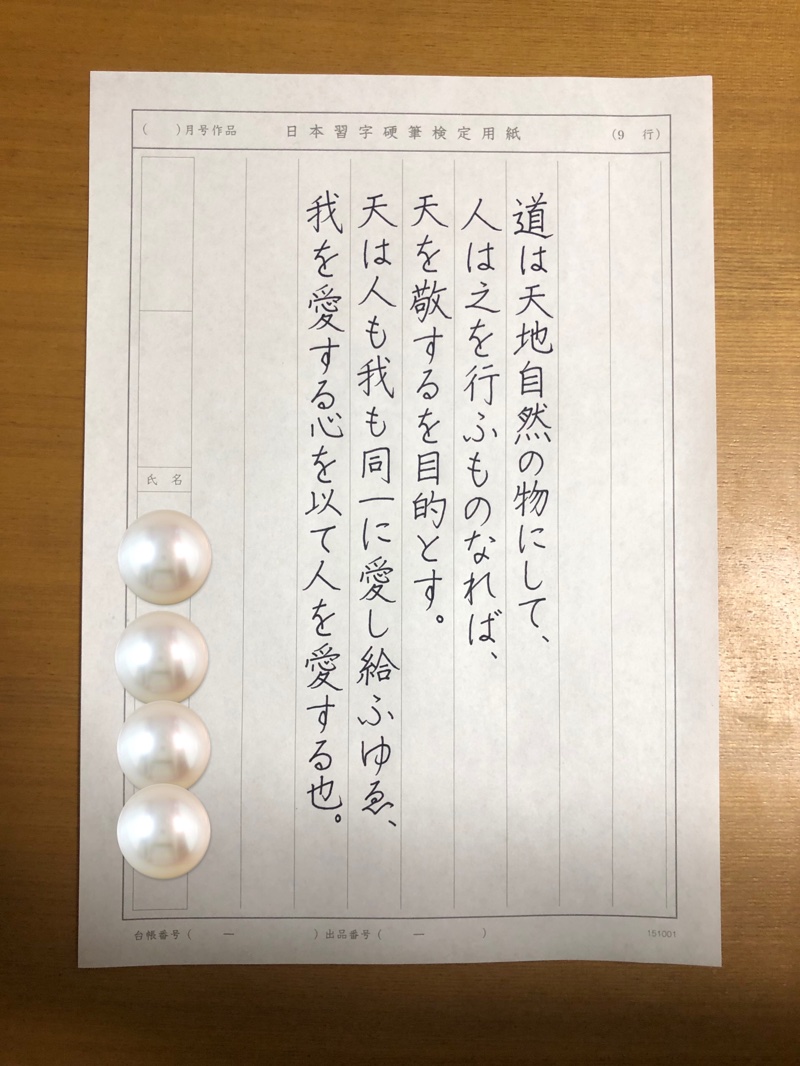 ( )月号作品 日本習字硬筆検定用紙 (9 行)
道は天地自然の物にして、
人は之を行ふものなれば、
天を敬するを目的とす。
天は人も我も同一に愛し給ふゆゑ、
我を愛する心を以て人を愛する也。
氏名
台帳番号( ー )出品番号( ー )
151001